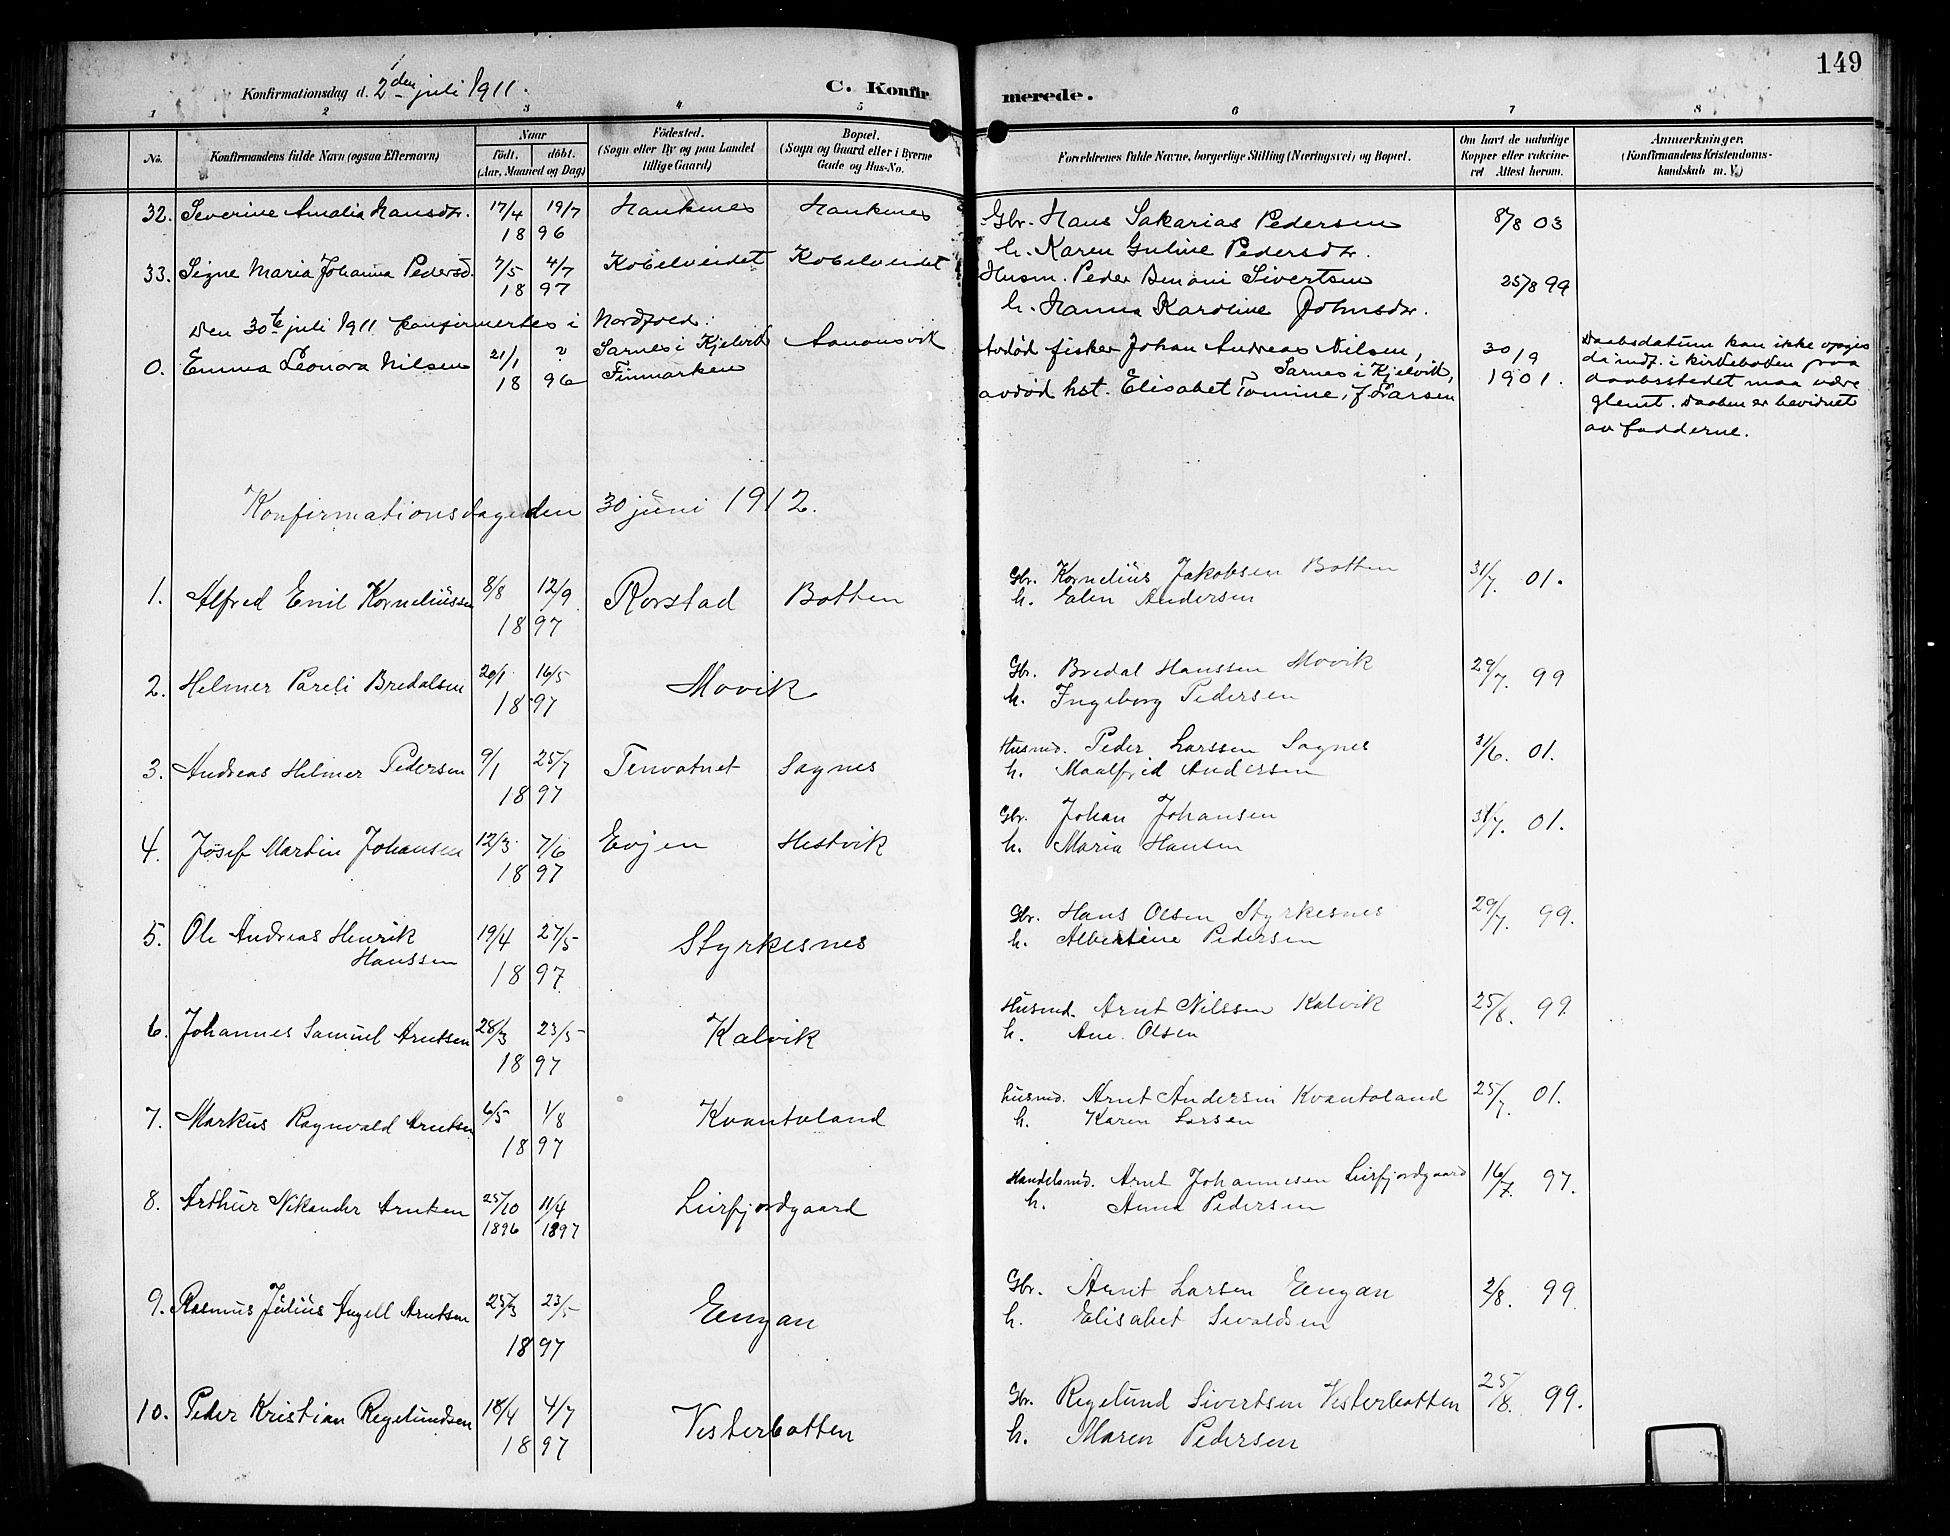 149
Konfirmationsdag d. 2den juli 1911. C. Konfir merede.
1 2 3 4 5 6 7 8
No. Konfirmandens fulde Navn (ogsaa Efternavn) Naar födt. döbt. (Aar, Maaned og Dag) Födested. (Sogn eller By og paa Landet tillige Gaard) Bopæl. (Sogn og Gaard eller i Byerne Gade og Hus-No. Forældrenes fulde Navne, borgerlige Stilling (Næringsvei) og Bopæl. Om havt de naturlige Kopper eller vakcineret Attest herom. Anmærkninger. (Konfirmandens Kristendomskundskab m. V.)
32. Severine Amalia Hansdr. 17/4 19/7 Haukenes Haukenes Gbr. Hans Sakarias Pedersen 8/8 03
18 96 h. Karen Guline Pedersdr.
33. Signe Maria Johanna Pedersd. 7/5 4/7 Kobelveidet Kobelveidet Husm. Peder Benoni Sivertsen 25/8 99
18 97 h. Hanna Karoline Johnsdr.
Den 30te juli 1911 konfirmertes i Nordfold:
0. Emma Leonora Nilsen 21/1 ? Sarnes i Kjelvik Aanonsvik Avdød fisker Johan Andreas Nilsen, 30/9 Daabsdatum kan ikke opgis
18 96 Finmarken Sarnes i Kjelvik, 1901. da indf. i kirkeboken paa
avdød hst. Elisabet Tomine, f. Larsen daabsstedet maa være
glemt. Daaben er bevidnet
av fadderne.
Konfirmationsdagen den 30 juni 1912.
1. Alfred Emil Korneliussen 8/8 12/9 Rorstad Botten Gbr. Kornelius Jakobsen Botten 31/7. 01.
18 97 h. Elen Andersen
2. Helmer Pareli Bredalsen 20/1 16/5 Movik Gbr. Bredal Hanssen Movik 29/7. 99
18 97 h. Ingeborg Pedersen
3. Andreas Helmer Pedersen 9/1 25/7 Tenvatnet Sagnes Husmd. Peder Larssen Sagnes 31/6. 01.
18 97 h. Maalfrid Andersen
4. Josef Martin Johansen 12/3 7/6 Evjen Hestvik Gbr. Johan Johansen 31/7. 01.
18 97 h. Maria Hansen
5. Ole Andreas Henrik 19/4 27/5 Styrkesnes Gbr. Hans Olsen Styrkesnes 29/7. 99.
Hanssen 18 97 h. Albertine Pedersen
6. Johannes Samuel Arntsen 28/3 23/5 Kalvik Husmd. Arnt Nilssen Kalvik 25/8. 99.
18 97 h. Ane Olsen
7. Markus Ragnvald Arntsen 6/5 1/8 Kvantoland husmd. Arnt Andersen Kvantoland 25/7. 01.
18 97 h. Karen Larsen
8. Arthur Nikander Arntsen 25/10 11/4 Leirfjordgaard Handelsmd. Arnt Johannesen Leirfjordgaard 16/7. 97.
1896 1897 h. Anna Pedersen
9. Rasmus Julius Angell Arntsen 25/3 23/5 Eengan Gbr. Arnt Larsen Eengan 2/8. 99.
18 97 h. Elisabet Sivaldsen
10. Peder Kristian Regelundsen 18/4 4/7 Vesterbotten Gbr. Regelund Sivertsen Vesterbotten 25/8. 99.
18 97 h. Maren Pedersen